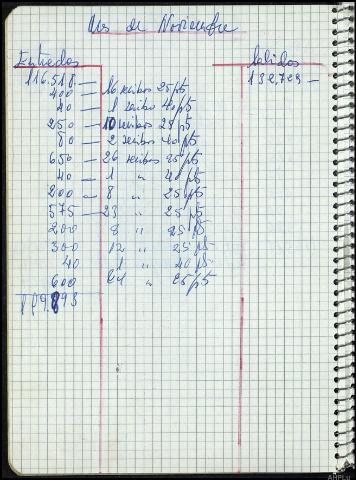 Mes de Noviembre
Entradas Salidas
116.518 — 132.723 —
400 — 16 recibos 25 pts
40 — 1 recibo 40 pts
250 — 10 recibos 25 pts
80 — 2 recibos 40 pts
650 — 26 recibos 25 pts
40 — 1 " 40 pts
200 — 8 " 25 pts
575 — 23 " 25 pts
200 8 " 25 pts
300 12 " 25 pts
40 1 " 40 pts
600 24 " 25 pts
119.893